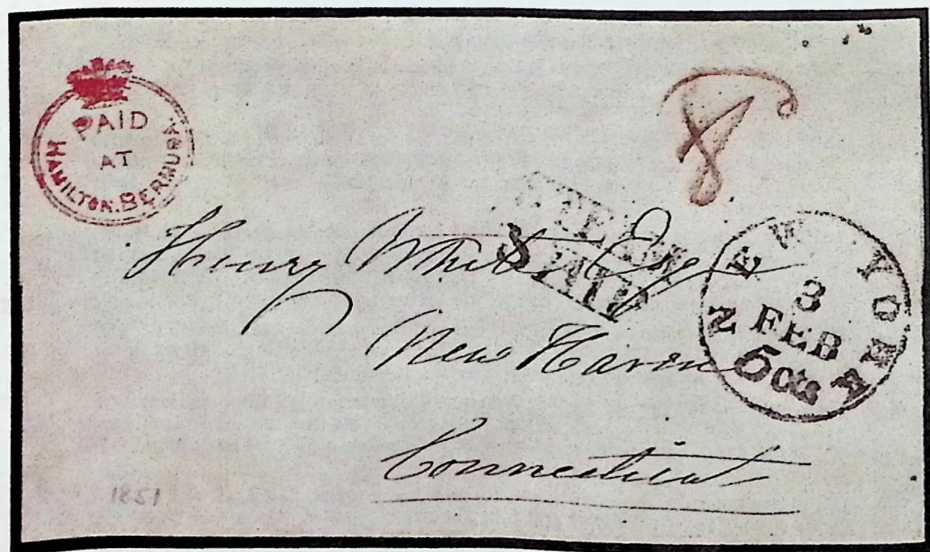 PAID
AT
HAMILTON. BERMUDA.
8
STEAM
SHIP
Henry White Esqr
New Haven
Connecticut
NEW YORK
3
FEB
5 cts
1281